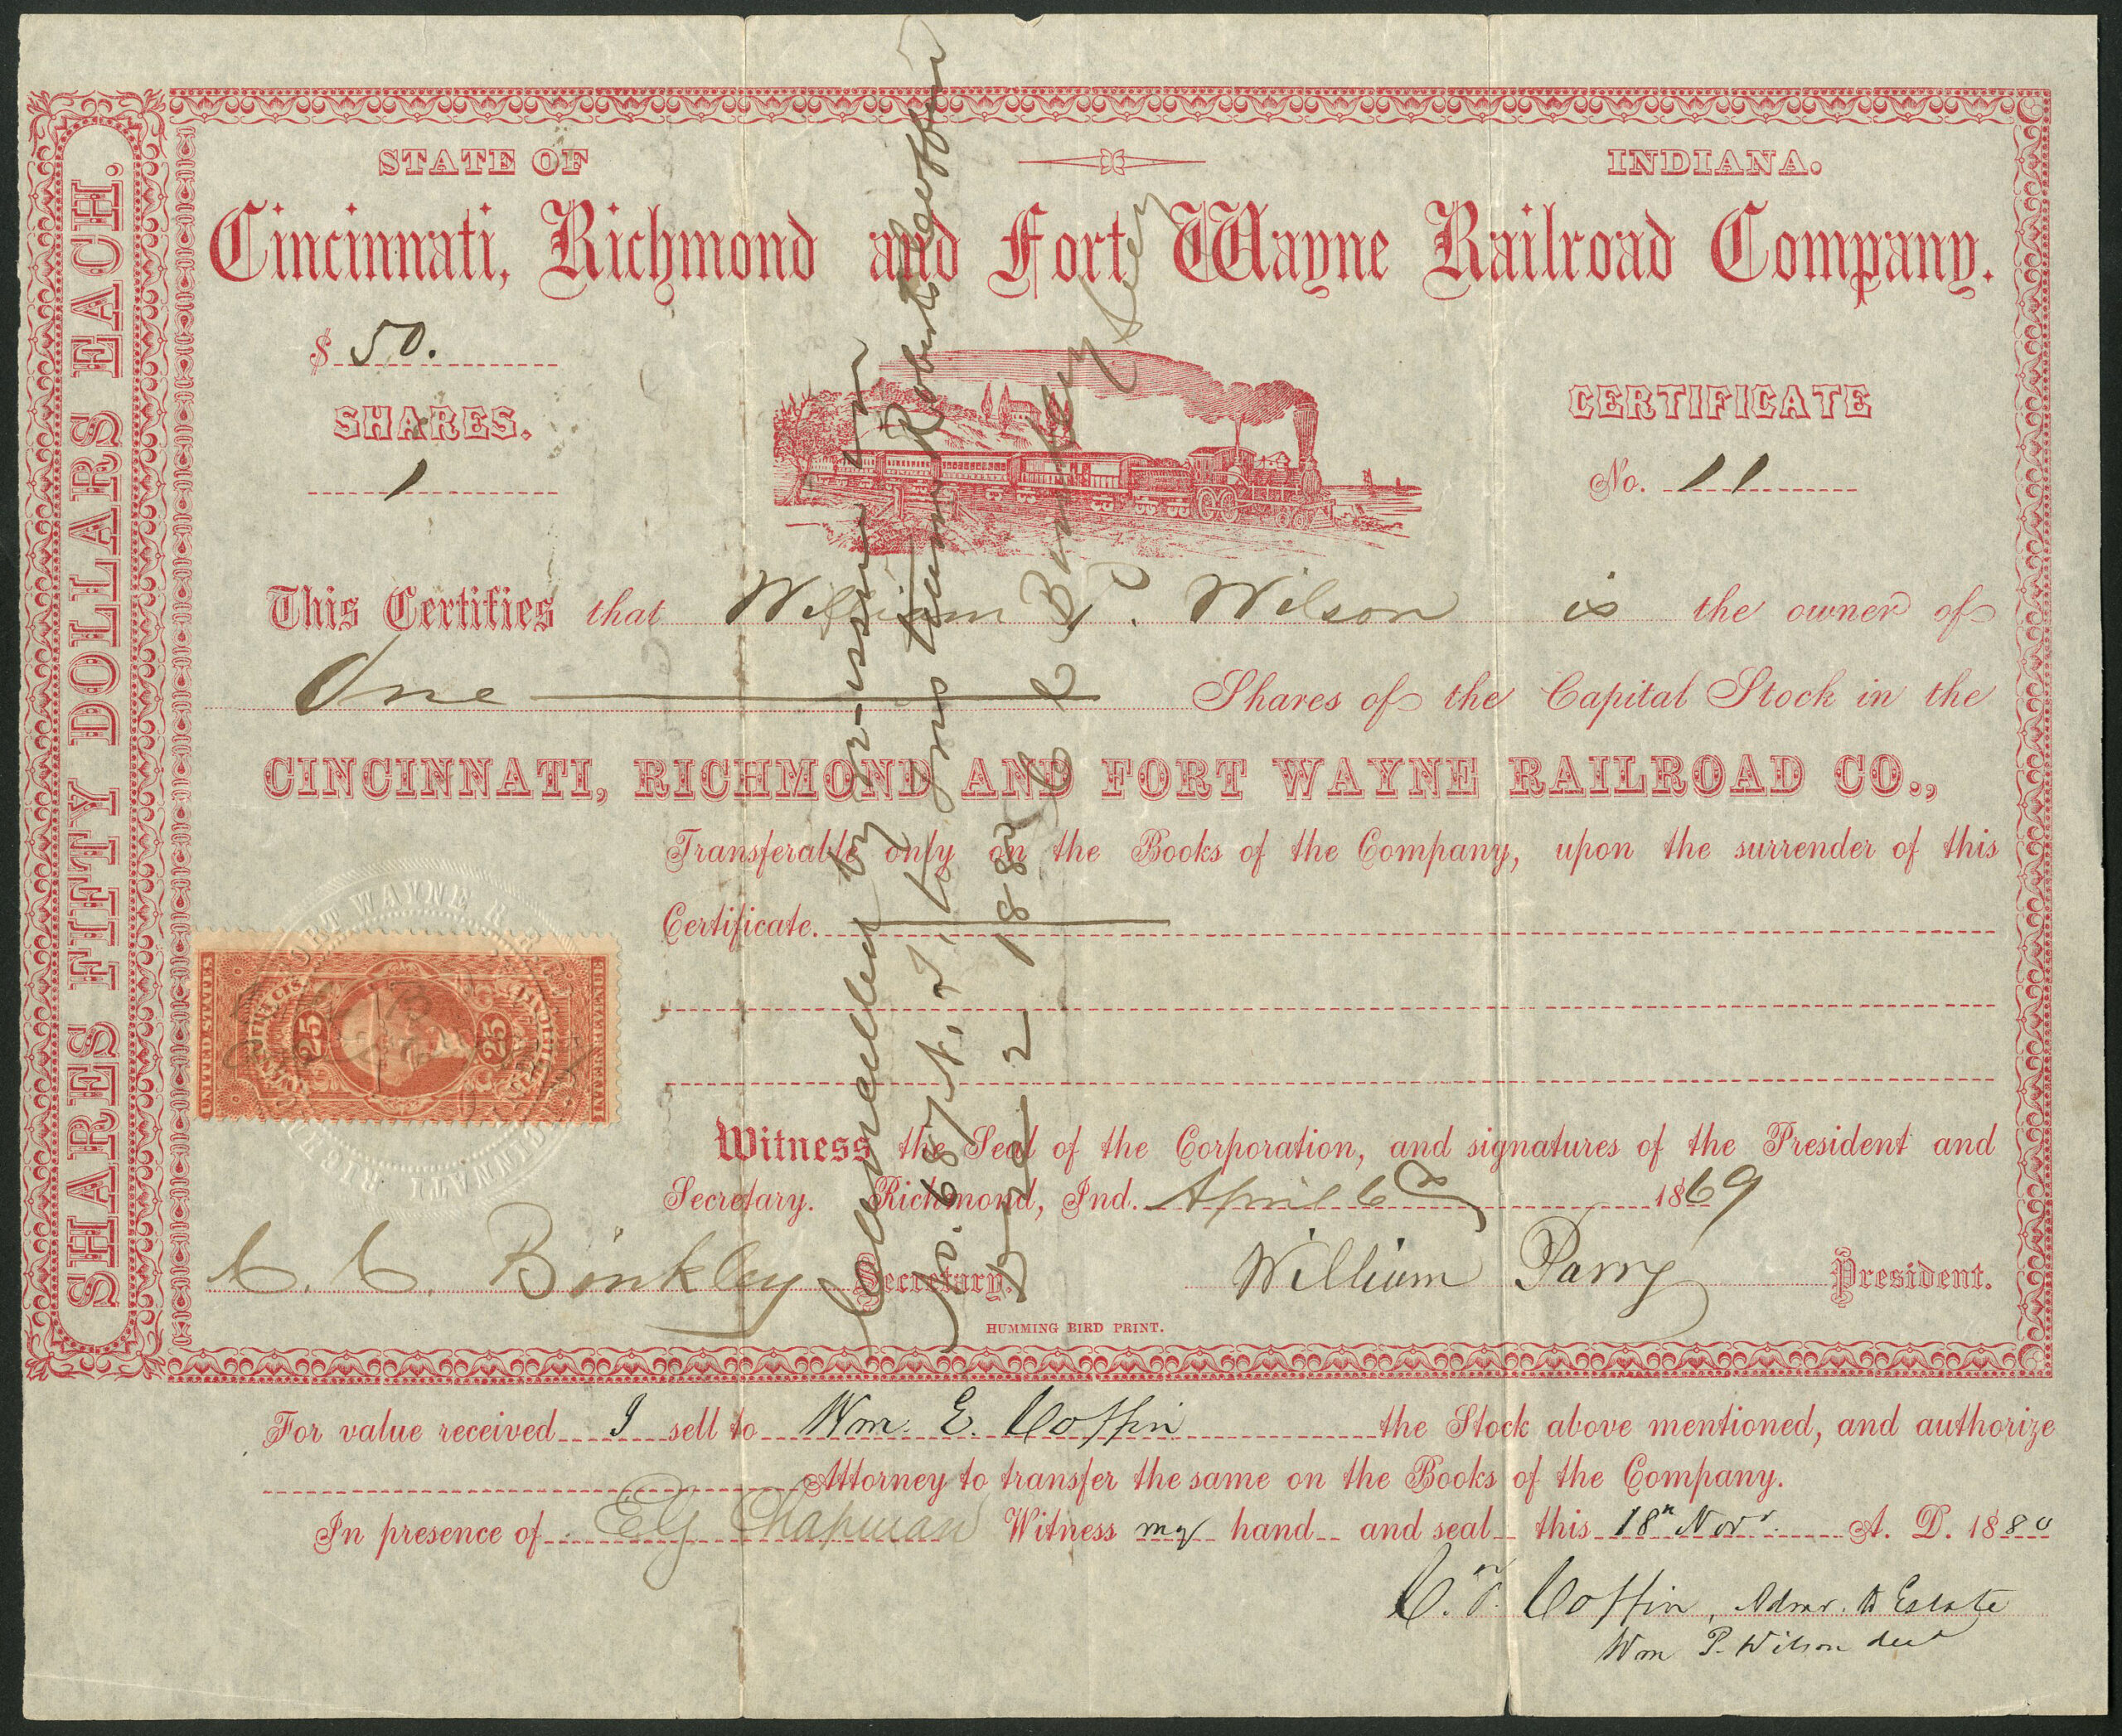 SHARES FIFTY DOLLARS EACH.
STATE OF INDIANA.
Cincinnati, Richmond and Fort Wayne Railroad Company.
$ 50.
SHARES.
1
CERTIFICATE
No. 11
This Certifies that William P. Wilson is the owner of
One Shares of the Capital Stock in the
CINCINNATI, RICHMOND AND FORT WAYNE RAILROAD CO.,
Transferable only on the Books of the Company, upon the surrender of this
Certificate.
UNITED STATES
INTER REVENUE
25 25
FORT WAYNE R
CINNATI RICH
Witness the Seal of the Corporation, and signatures of the President and
Secretary. Richmond, Ind. April 6 1869
C. C. Binkley Secretary. William Parry President.
HUMMING BIRD PRINT.
Cancelled by re-issue on
No. 687 N. S. to Coffin
Dec 2 1882
C C Binkley Secy
For value received I sell to Wm. E. Coffin the Stock above mentioned, and authorize
Attorney to transfer the same on the Books of the Company.
In presence of E G Chapman Witness my hand and seal this 18th Novr. A. D. 1880
C. F. Coffin, Admr. Estate
Wm P. Wilson decd